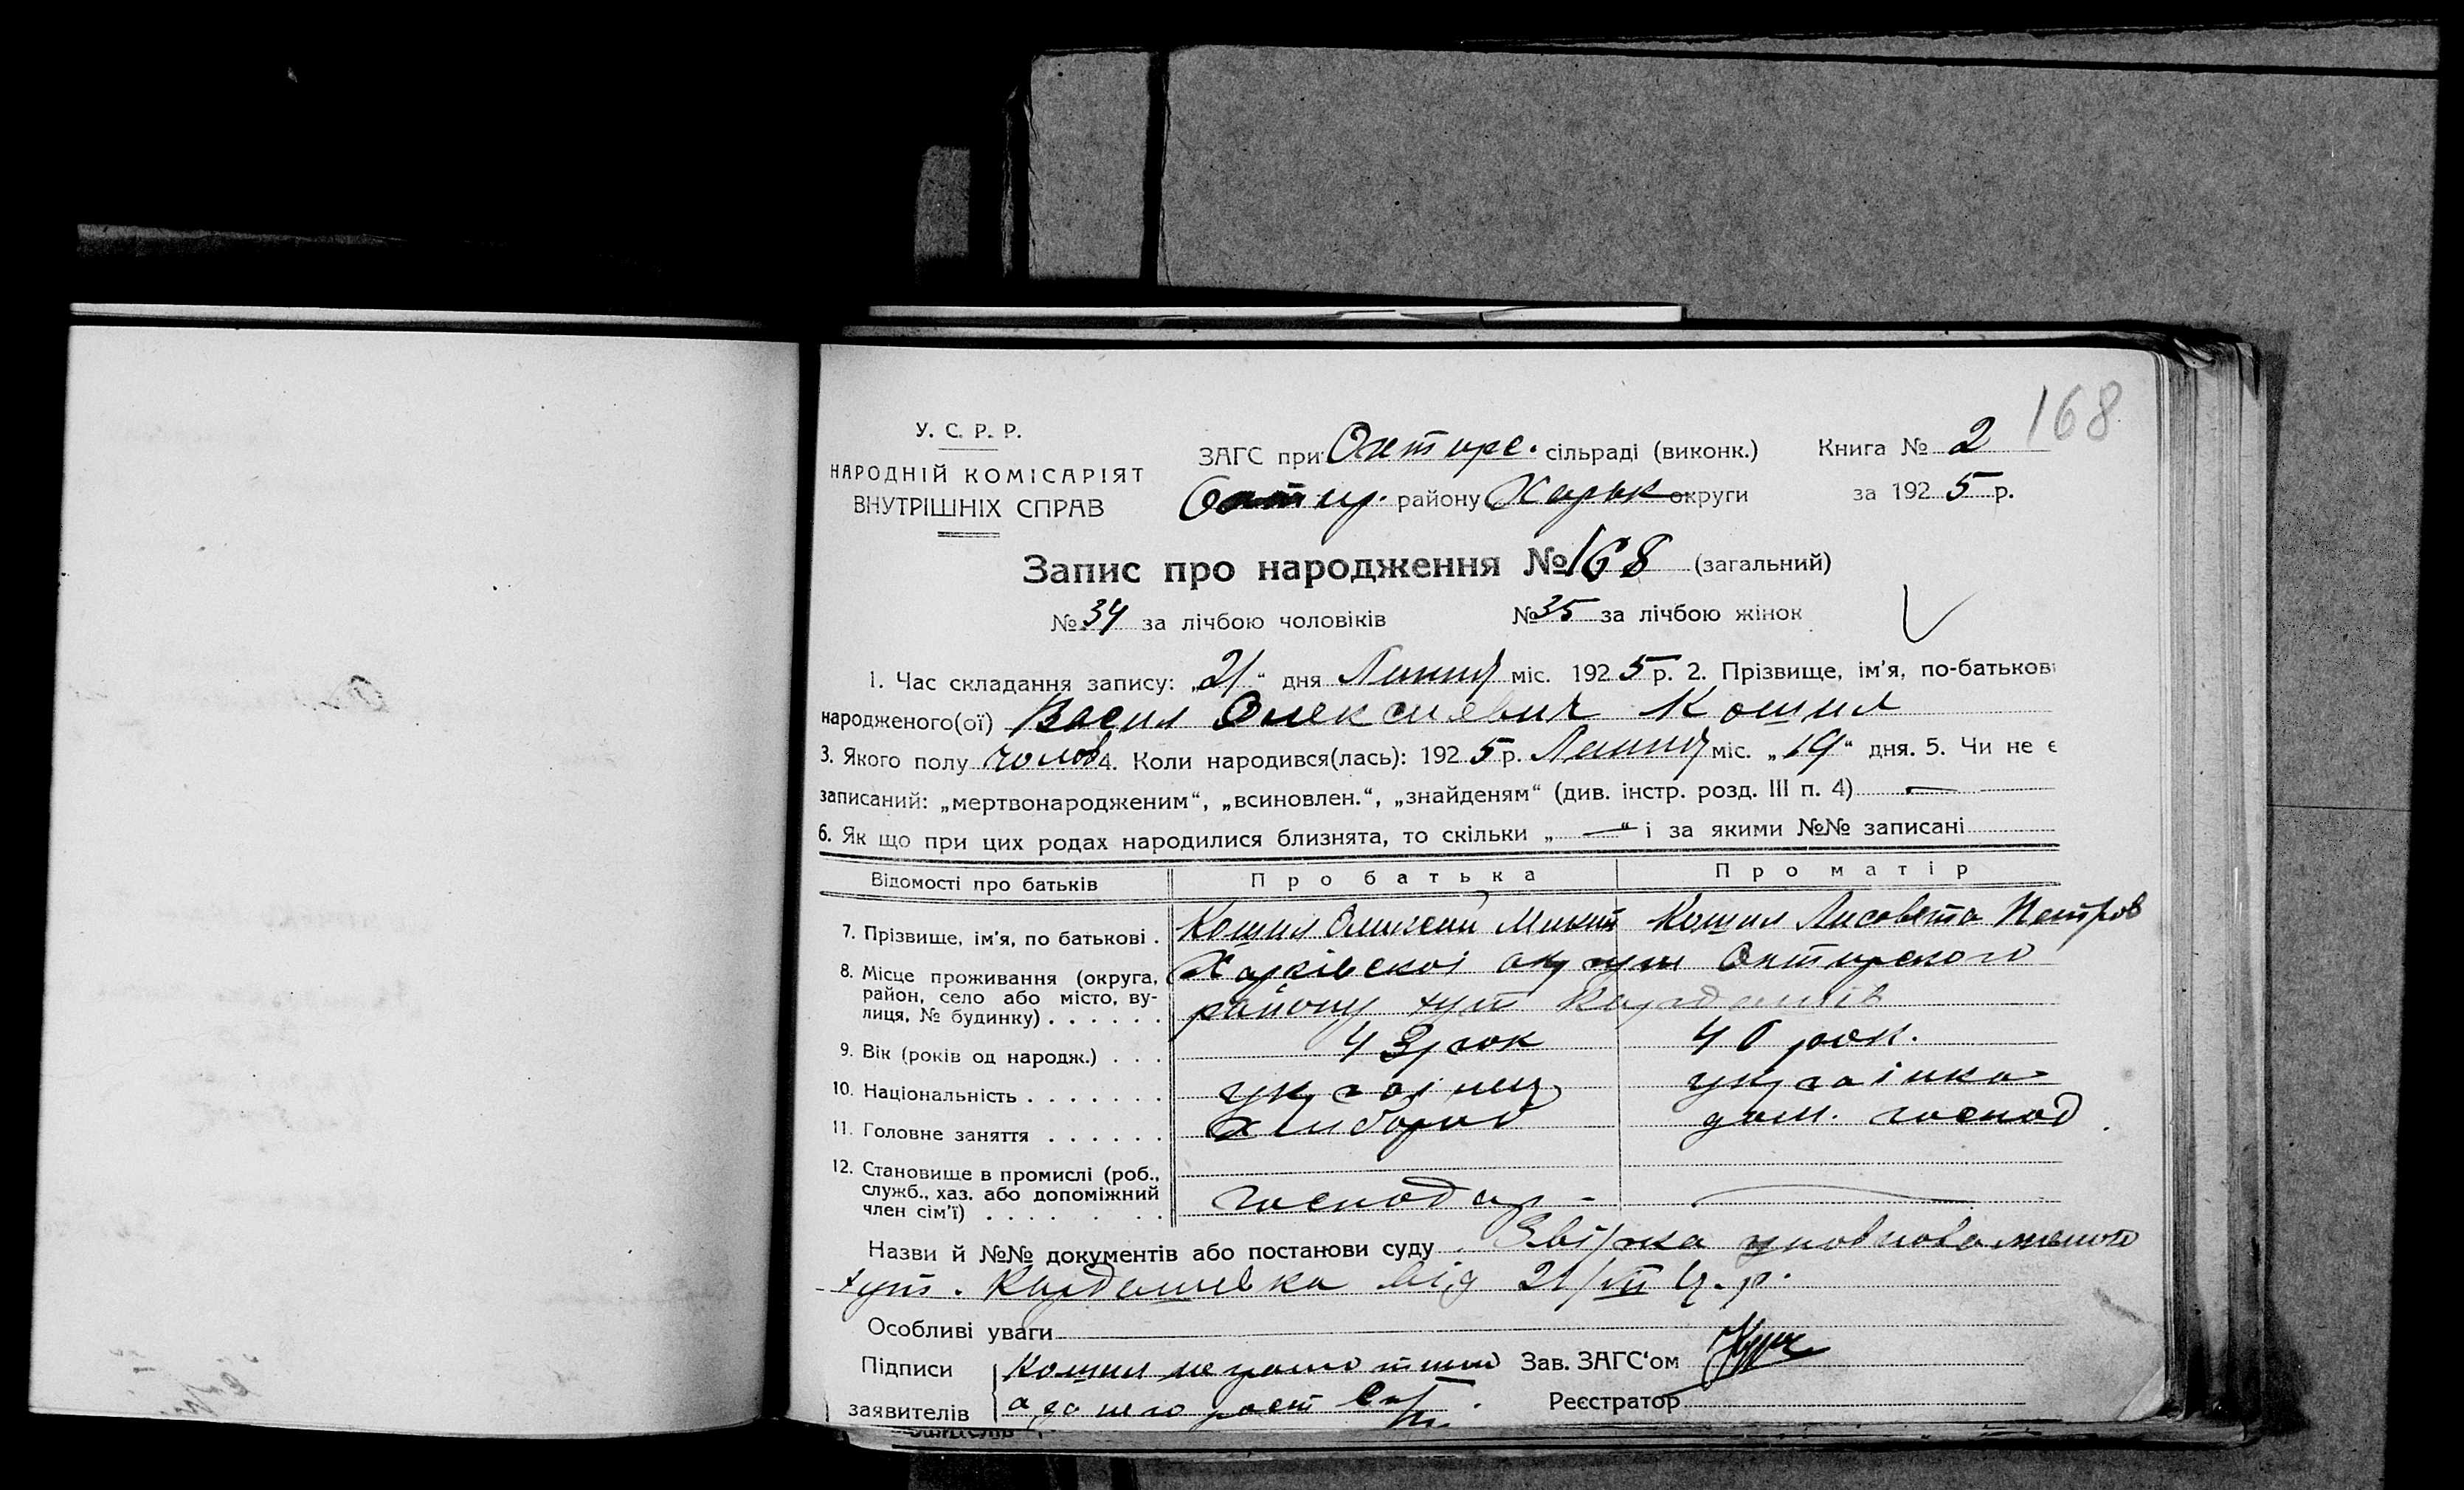 168
У. С. Р. Р.
НАРОДНІЙ КОМІСАРІЯТ
ВНУТРІШНІХ СПРАВ
ЗАГС при Охтирс. сільраді (виконк.) Книга № 2
Охтир. району Харьк округи за 1925 р.
Запис про народження № 168 (загальний)
№ 34 за лічбою чоловіків № 35 за лічбою жінок
1. Час складання запису: „21“ дня Липня міс. 1925 р. 2. Прізвище, ім'я, по-батькові
народженого(ої) Васил Олексиевич Кошил
3. Якого полу чолов 4. Коли народився(лась): 1925 р. Липня міс. „19“ дня. 5. Чи не є
записаний: „мертвонародженим“, „всиновлен.“, „знайденям“ (див. інстр. розд. III п. 4) —
6. Як що при цих родах народилися близнята, то скільки „—“ і за якими №№ записані
Відомості про батьків Про батька Про матір
7. Прізвище, ім'я, по батькові . Кошил Олексий Микит Кошил Лисовета Петров
8. Місце проживання (округа, район, село або місто, вулиця, № будинку) . . . . . . Харківскоі округи Охтирского
району хут Кардашів
9. Вік (років од народж.) . . . 43 рок 40 рок.
10. Національність . . . . . . . украінец украінка
11. Головне заняття . . . . . . хлибороб дом. господ
12. Становище в промислі (роб., служб., хаз. або допоміжний член сім'ї) . . . . . . господар — —
Назви й №№ документів або постанови суду. Звірка уповноваженого
хут. Кардашевка від 21/VII ц. р.
Особливі уваги
Підписи Кошил неграмотний Зав. ЗАГС'ом
заявителів а за него рост Реєстратор